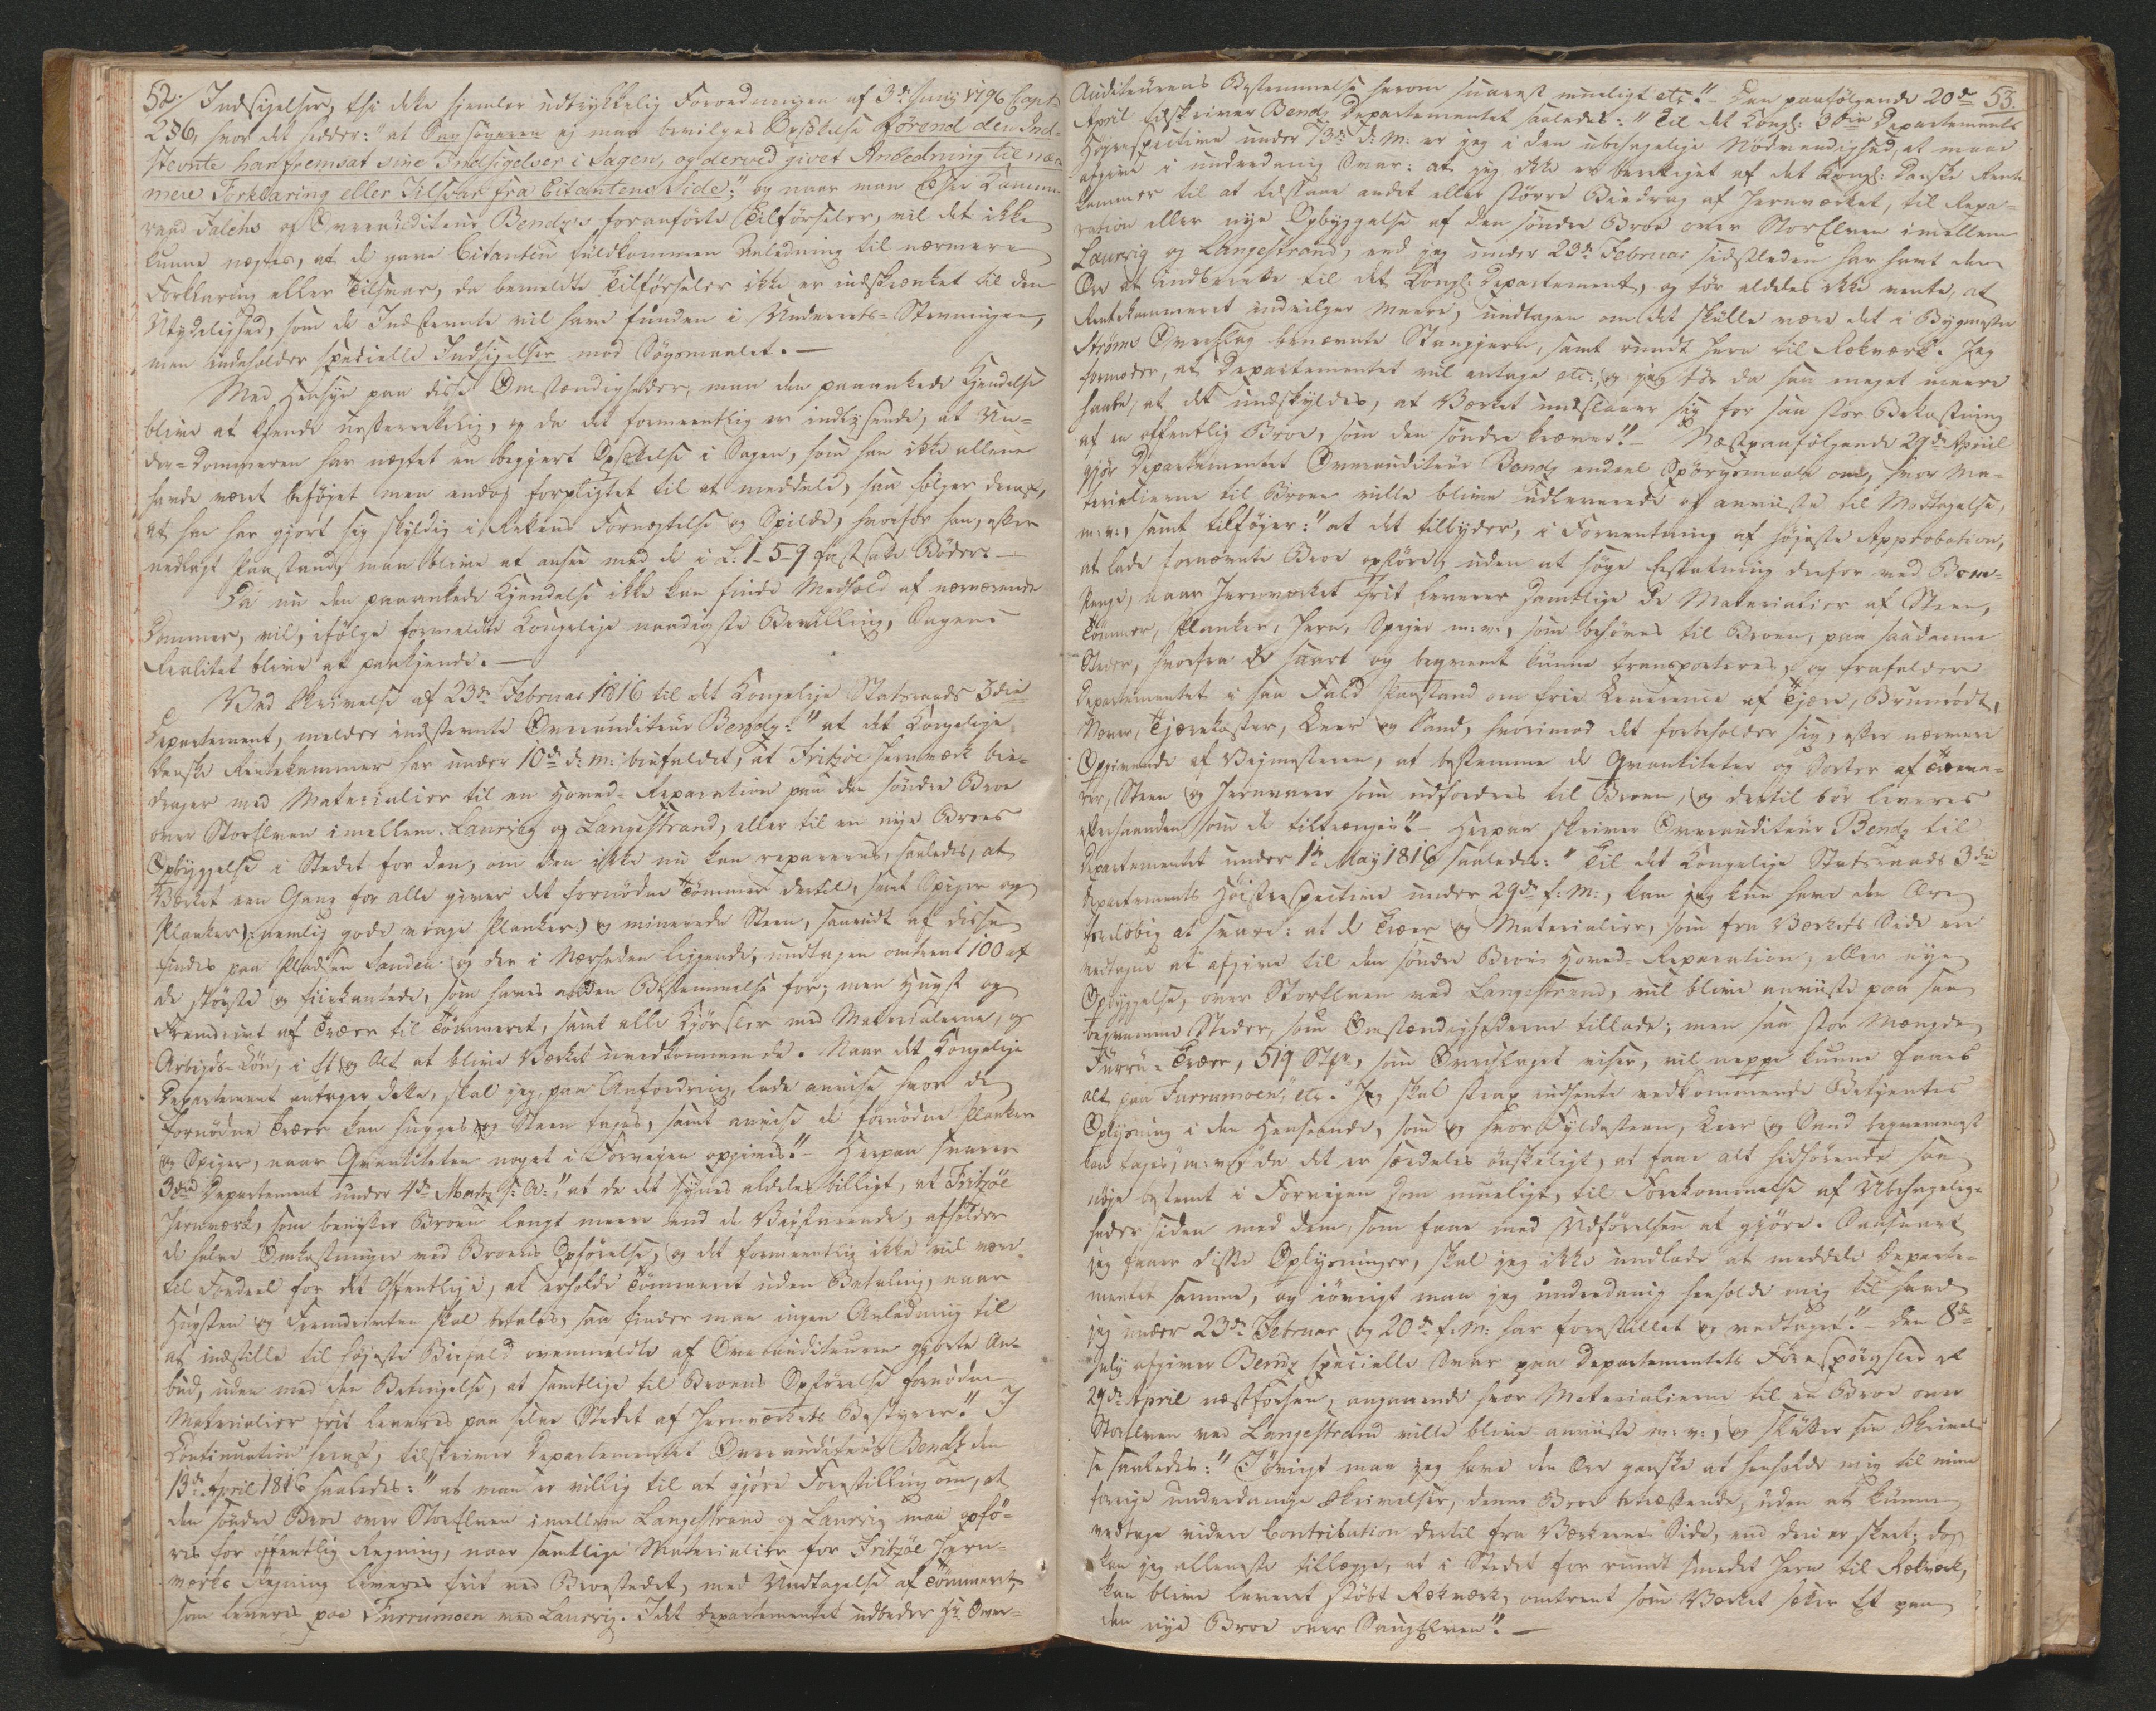 52. Indsigelser, thi dette hjemler udtrykkelig Forordningen af 3de Juny 1796 Cap:
§36, hvor det hedder: "at Sagsøgeren ej maa bevilges Opsættelse førend den Ind-
stevnte har fremsat sine Indsigelser i Sagen, og derved givet Anledning til nær-
mere Forklaring eller Tilsvar fra Citantens Side;" og naar man efter Kammer-
raad Falchs og Overauditeur Bendz's foranførte Tilførseler, vil det ikke
kunne nægtes, at de gave Citanten fuldkommen Anledning til nærmere
Forklaring eller Tilsvar, da bemeldte Tilførseler ikke er indskrænket til den
Utydelighed, som de Indstevnte vil have funden i Underrets-Stevningen,
men indeholder specielle Indsigelser mod Søgsmaalet. —
Med Hensyn paa disse Omstændigheder, maa den paaankede Kjendelse
blive at kjende uefterrettelig, og da det formeentlig er indlysende, at Un-
der-Dommeren har nægtet en begjert Opsættelse i Sagen, som han ikke allene
havde været beføjet men endog forpligtet til at meddele, saa følger deraf,
at han har gjort sig skyldig i Rettens Fornægtelse og Spilde, hvorfor han, efter
nedlagt Paastand, maa blive at ansee med de i L: 1-5-9 fastsatte Bøder. —
Da nu den paaankede Kjendelse ikke kan finde Medhold af nærværende
Dommer, vil, ifølge formeldte Kongelige naadigste Bevilling, Sagens
Realitet blive at paakjende. —
Ved Skrivelse af 23de Februar 1816 til det Kongelige Statsraads 3die
Departement, melder indstevnte Overauditeur Bendz: "at det Kongelige
Danske Rentekammer har under 10de d: M: bifaldet, at Fritzøe Jernværk bi-
drager med Materialier til en Hoved-Reparation paa den søndre Broe
over StorElven imellem Laurvig og Langestrand, eller til en nye Broes
Opbyggelse i Stedet for den, om den ikke nu kan repareres, saaledes, at
Værket een Gang for alle giver det fornødne Tømmer dertil, samt Spiger og
Planker (nemlig gode vrage Planker:) og minerede Steen, saavidt af disse
findes paa Pladsen Sanden og der i Nærheden liggende, undtagen omtrent 100 af
de største og fiirkantede, som haves anden Bestemmelse for; men Hugst og
Fremdrivt af Træer til Tømmeret, samt alle Kjørsler med Materialerne, og
Arbejds-Løn, i Et og Alt at blive Værket uvedkommende. Naar det Kongelige
Departement antager dette, skal jeg, paa Anfordring, lade anvise hvor de
fornødne Træer kan hugges og Steen tages, samt anvise de fornødne Planker
og Spiger, naar Quantiteten noget i Forvejen opgives." — Herpaa svarer
3die Departement under 4de Martz s: A:, "at da det synes aldeles billigt, at Fritzøe
Jernværk, som benytter Broen langt meere end de Vejfarende, afholder
de halve Omkostninger ved Broens Opførelse, og det formeentlig ikke vil være
til Fordeel for det Offentlige, at erholde Tømmeret uden Betaling, naar
Hugsten og Fremdrivten skal betales, saa finder man ingen Anledning til
at indstille til højeste Bifald ovenmeldte af Overauditeuren gjorte An-
bud, uden med den Betingelse, at samtlige til Broens Opførelse fornødne
Materialier frit leveres paa selve Stedet af Jernværkets Bestyrer." I
Continuation heraf, tilskriver Departementet Overauditeur Bendz den
13de April 1816 saaledes: "at man er villig til at gjøre Forestilling om, at
den søndre Broe over StorElven imellem Langestrand og Laurvig maa opfø-
res for offentlig Regning, naar samtlige Materialier for Fritzøe Jern-
værks Regning leveres frit ved Broestedet, med Undtagelse af Tømmeret,
som leveres paa Furrumoen ved Laurvig. Idet Departementet udbeder Hr Over-
53.
Auditeurens Bestemmelse herom snarest mueligt etc." — Den paafølgende 20de
April tilskriver Bendz Departementet saaledes: "Til det Kongl: 3die Departements
Højrespective under 13de d: M: er jeg i den ubehagelige Nødvendighed, at maae
afgive i underdanig Svar: at jeg ikke er berettiget af det Kongl: Danske Rente
kammer til at tilstaae andet eller større Bidrag af Jernværket, til Repa-
ration eller nye Opbyggelse af den søndre Broe over StorElven imellem
Laurvig og Langestrand, end jeg under 23de Februar sidstleden har havt den
Ære at indberette til det Kongl: Departement, og tør aldeles ikke vente, at
Rentekammeret indvilger meere, undtagen om det skulle være det i Bygmester
Strøms Overslag benævnte Stangjern, samt rundt Jern til Rækværk. Jeg
formoder, at Departementet vil antage etc:, og jeg tør da saa meget meere
haabe, at det undskyldes, at Værket undslaaer sig for saa stor Bekostning
af en offentlig Broe, som den søndre kræver." — Næstpaafølgende 29de April
gjør Departementet Overauditeur Bendz endeel Spørgsmaale om, hvor Ma-
terialierne til Broen ville blive udleverede og anviiste til Modtagelse,
m: v:, samt tilføjer: "at det tilbyder, i Forventning af højeste Approbation,
at lade fornævnte Broe opføre, uden at søge Erstatning derfor ved Bom-
Penge, naar Jernværket frit leverer samtlige de Materialier af Steen,
Tømmer, Planker, Jern, Spiger m: v:, som behøves til Broen, paa saadanne
Steder, hvorfra de snart og beqvemt kunne transporteres, og frafalder
Departementet i saa Fald Paastand om frie Leverence af Tjære, Brunrødt,
Næver, Tjærekoster, Leer og Sand, hvorimod det forbeholder sig, efter nærmere
Opgivende af Vejmesteren, at bestemme de Qvantiteter og Sorter af Træva-
rer, Steen og Jernvarer som udfordres til Broen, og dertil bør leveres
efterhaanden som de tiltrænges." — Herpaa skriver Overauditeur Bendz til
Departementet under 1ste May 1816 saaledes: "Til det Kongelige Statsraads 3die
Departements Høistrespective under 29de f: M:, kan jeg kun have den Ære
foreløbig at svare: at de Træer og Materialier, som fra Værkets Side ere
vedtagne at afgive til den søndre Broes Hoved-Reparation, eller nye
Opbyggelse, over StorElven ved Langestrand, vil blive anviiste paa saa
beqvemme Steder, som Omstændighederne tillade; men saa stor Mængde
Furru-Træer, 519 Stkr, som Overslaget viser, vil neppe kunne faaes
alt paa Furrumoen, etc. Jeg skal strax indhente vedkommende Betjentes
Oplysning i den Henseende, som og hvor Fyldesteen, Leer og Sand beqvemmest
kan tages, m: v: da det er særdeles ønskeligt, at faae alt hidhørende saa
nøje bestemt i Forvejen som mueligt, til Forekommelse af Ubehagelig-
heder siden med dem, som faae med Udførelsen at gjøre. Saasnart
jeg faaer disse Oplysninger, skal jeg ikke undlade at meddele Departe-
mentet samme, og iøvrigt maa jeg underdanig henholde mig til hvad
jeg under 23de Februar og 20de f: M: har forestillet og vedtaget." — den 8de
July afgiver Bendz specielle Svar paa Departementets Forespørgsler af
29de April næstforhen, angaaende hvor Materialierne til en Broe over
StorElven ved Langestrand ville blive anviiste m: v:, og slutter sin Skrivel-
se saaledes: "Iøvrigt maa jeg have den Ære ganske at henholde mig til mine
forrige underdanige Skrivelser, denne Broe betræffende, uden at kunne
vedtage videre Contribution dertil fra Værkernes Side, end deri er skeet; dog
kan jeg alleneste tillægge, at i Stedet for rundt smedet Jern til Rækværk,
kan blive leveret støbt Rækværk, omtrent som Værket haver Et paa
den nye Broe over LangElven". —